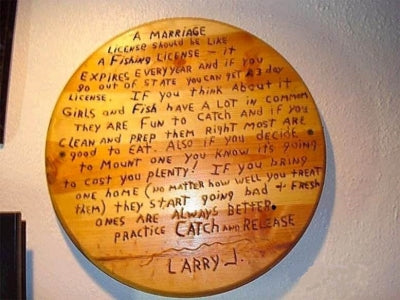 A MARRIAGE
LICENSE SHOULD BE LIKE
A FISHING LICENSE — it
EXPIRES EVERY YEAR AND iF YOU
go out oF STATE YOU CAN gET A 3 day
LICENSE. IF you THiNk ABoUt iT
GiRLS AND FisH HAVE A LOT iN COMMON
THEY ARE FUN TO CATCH AND iF YOU
CLEAN AND PREP THEM RigHT MOST ARE
good to EAT. ALSo iF you DECiDE
TO MOUNT ONE YOU KNOW iTs goiNg
to COST you PLENTY! IF you BRiNg
ONE HOME (NO MATTER how WELL you TREAT
THEM) THEY START goiNg bad & FRESH
ONES ARE ALWAYS BETTER.
PRACTICE CATCH AND RELEASE
LARRY J.